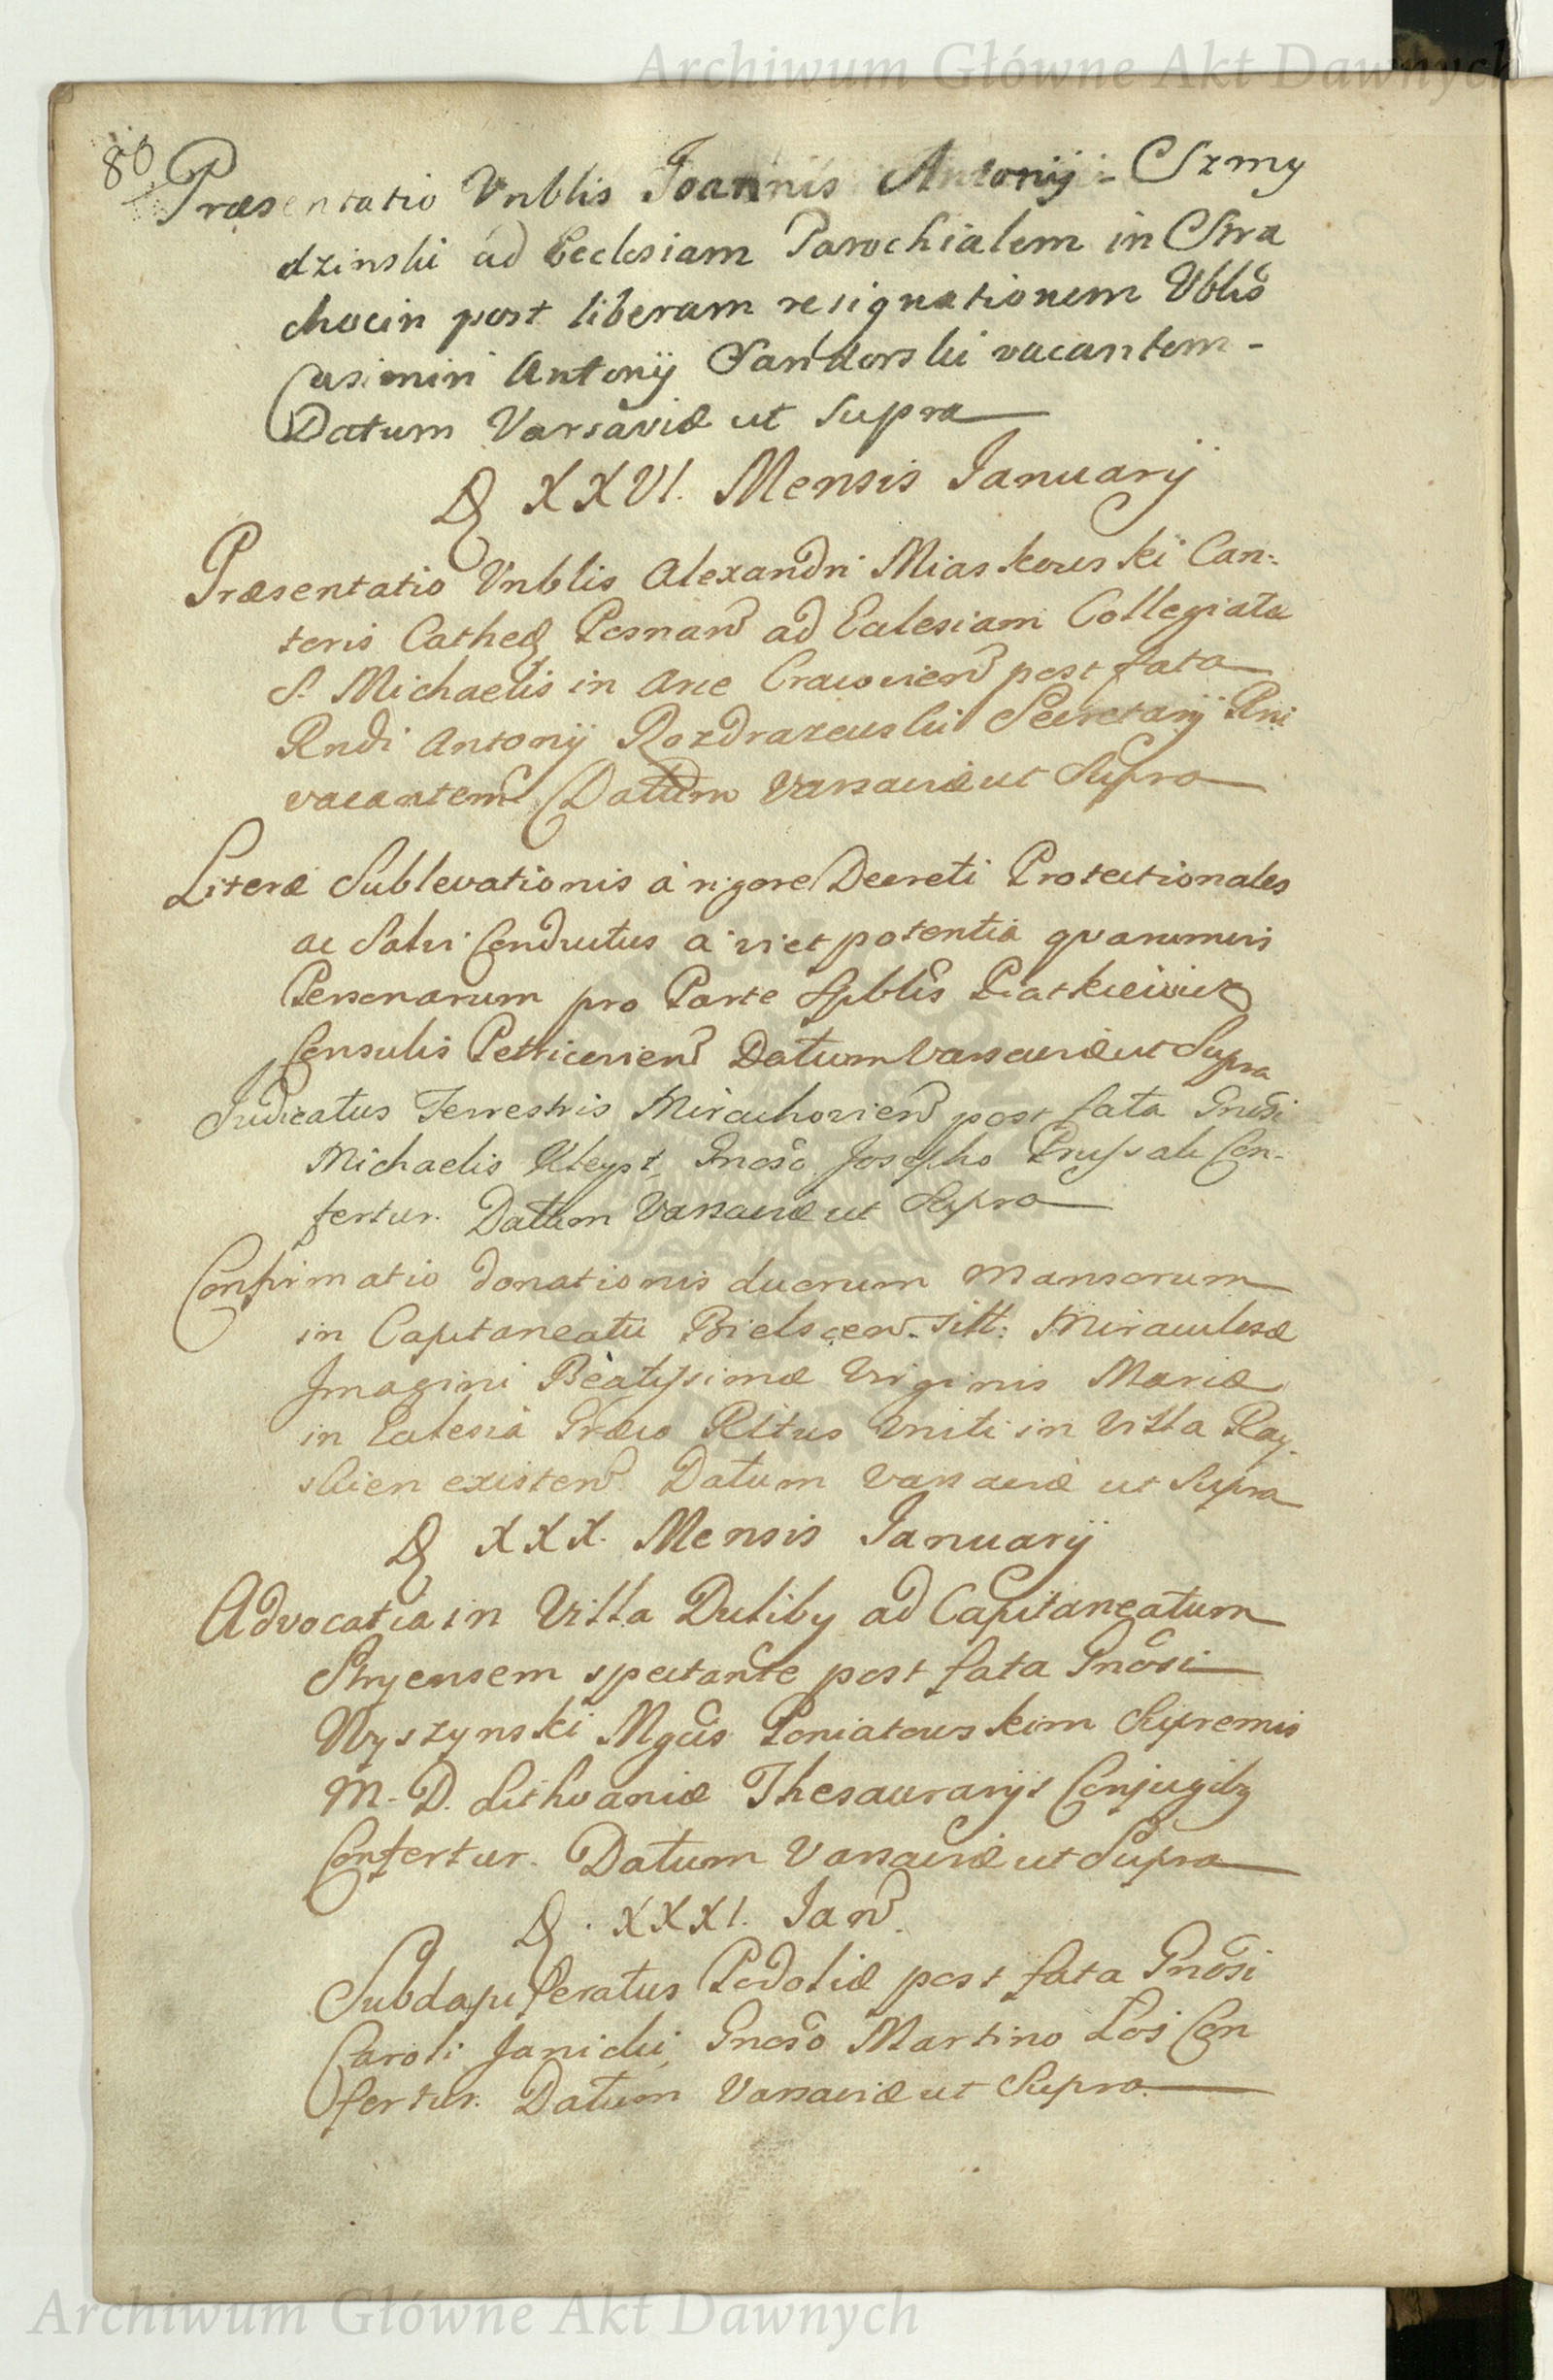 Archiwum Główne Akt Dawnych
80
Præsentatio Vnblis Joannis Antonij Szmy
dzinski ad Ecclesiam Parochialem in Stra
chocin post liberam resignationem Vblis
Casimiri Antonij Sandorski vacantem -
Datum Varsaviæ ut supra
D XXVI. Mensis Januarij
Præsentatio Vnblis Alexandri Miaskowski Can:
toris Cathed Posnan ad Ecclesiam Collegiata
S. Michaelis in Arce Cracovien post fata
Rndi Antonij Rozdrazewski Secretarij Rni
vacantem Datum Varsaviæ ut Supra
Literæ Sublevationis a rigore Decreti Protectionales
ac Salvi Conductus a vi et potentia quarumvis
Personarum pro Parte Spblis Piatkiewicz
Consulis Petricovien Datum Varsaviæ ut Supra
Judicatus Terrestris Mirachovien post fata Gnosi
Michaelis Kleyst, Gnoso Josepho Prussak Con-
fertur. Datum Varsaviæ ut Supra
Confirmatio donationis duorum mansorum
in Capitaneatu Bielscen. Titt: Miraculosæ
Imagini Beatissimæ Virginis Mariæ
in Ecclesia Græco Ritus Uniti in Villa Ray-
skien existen Datum Varsaviæ ut Supra
D XXX. Mensis Januarij
Advocatia in Villa Duliby ad Capitaneatum
Stryensem spectante post fata Gnosi
Wyszynski Mgcis Poniatowskim Supremis
M. D. Lithvaniæ Thesaurarijs Conjugibz
Confertur. Datum Varsaviæ ut Supra
D. XXXI. Jan.
Subdapiferatus Podoliæ post fata Gnosi
Caroli Janicki, Gnoso Martino Los Con
fertur. Datum Varsaviæ ut Supra.
Archiwum Główne Akt Dawnych